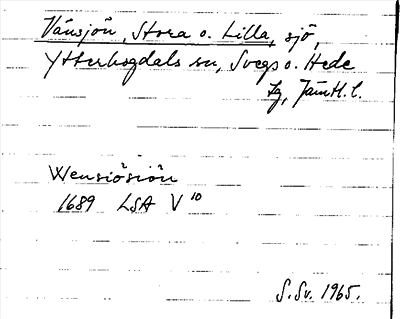 Vänsjön, Stora o. Lilla, sjö,
Ytterhogdals sn, Svegs o. Hede
tg, Jämtl. l.
Wensiösiön
1689 LSA V 10
S. Sv. 1965.